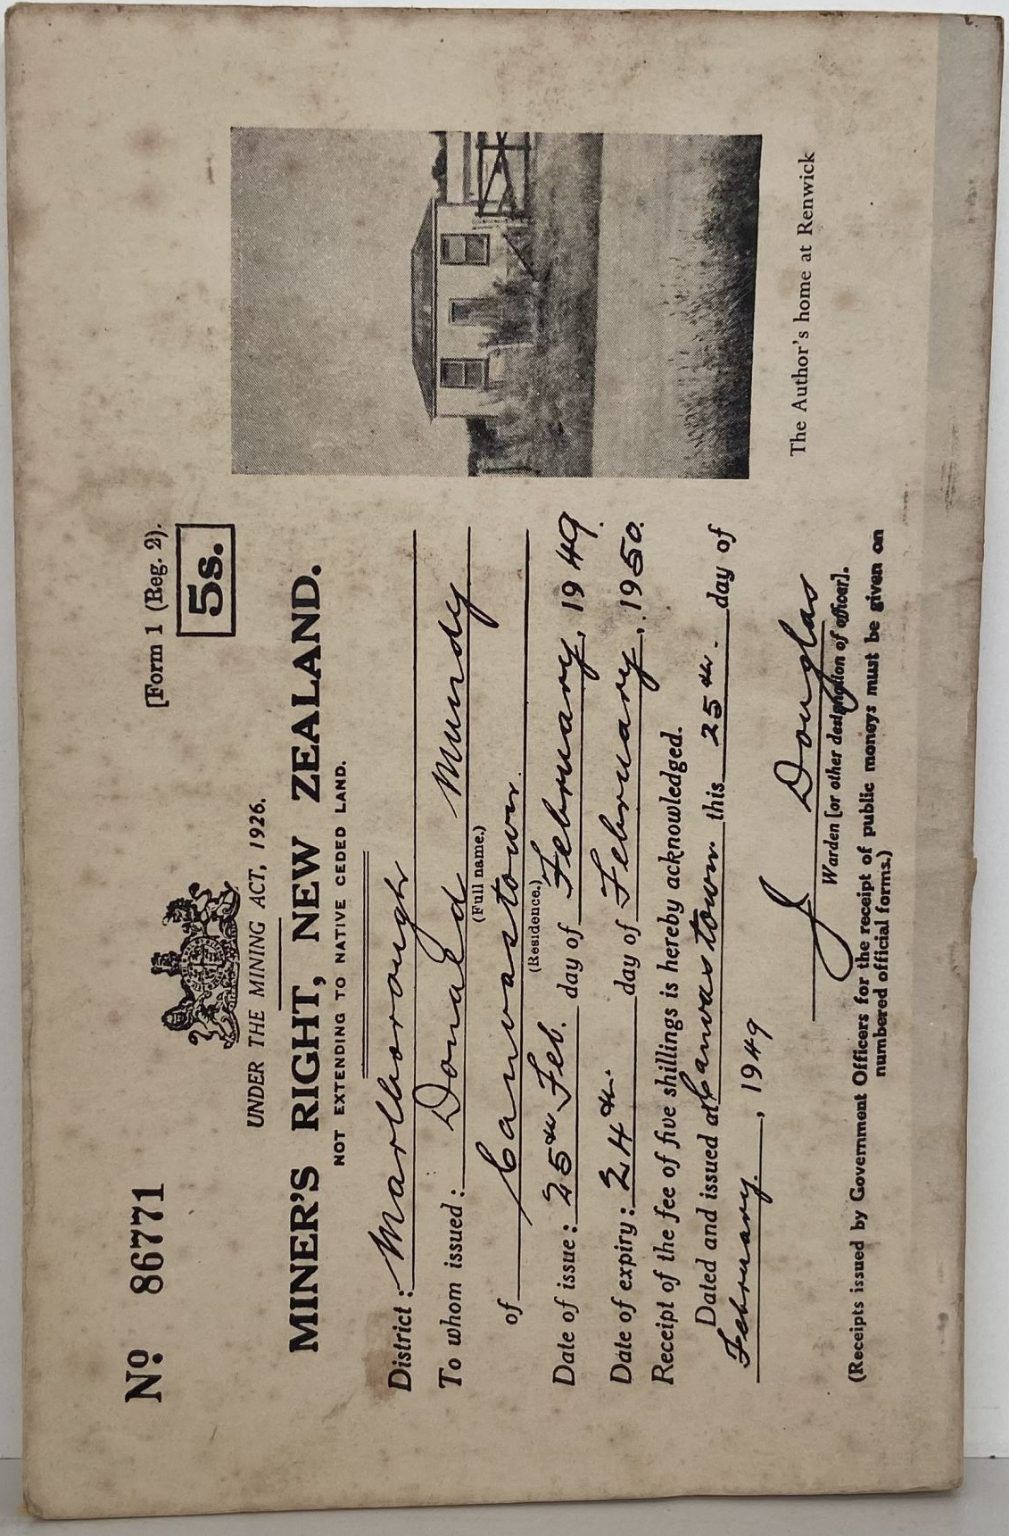 Nº 86771
[Form 1 (Reg. 2).
5s.
UNDER THE MINING ACT, 1926.
MINER'S RIGHT, NEW ZEALAND.
NOT EXTENDING TO NATIVE CEDED LAND.
District: Marlborough
To whom issued: Donald Mundy
(Full name.)
of Canvastown.
(Residence.)
Date of issue: 25th Feb. day of February, 1949.
Date of expiry: 24th. day of February, 1950.
Receipt of the fee of five shillings is hereby acknowledged.
Dated and issued at Canvastown this 25th. day of
February., 1949
J Douglas
Warden [or other designation of officer].
(Receipts issued by Government Officers for the receipt of public moneys must be given on
numbered official forms.)
The Author's home at Renwick